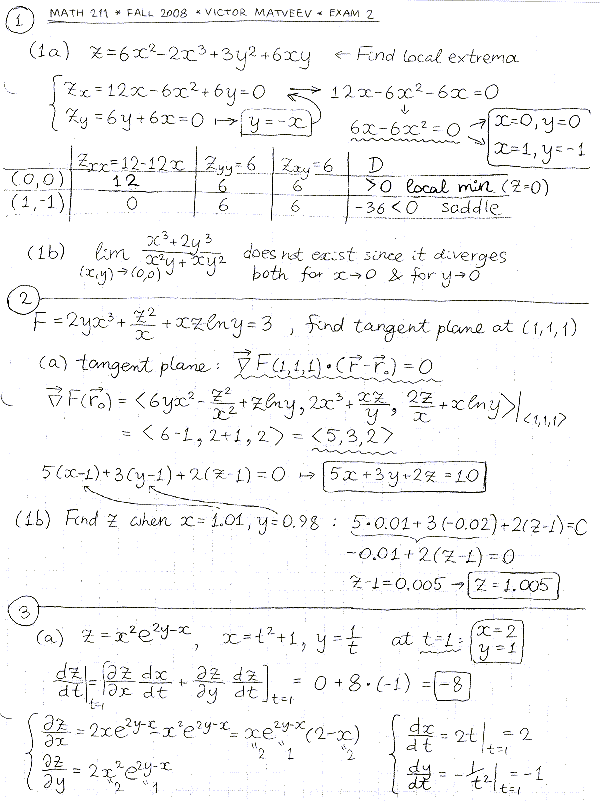 MATH 211 * FALL 2008 * VICTOR MATVEEV * EXAM 2
① (1a) z = 6x² - 2x³ + 3y² + 6xy ← Find local extrema
{ Zx = 12x - 6x² + 6y = 0 ⟷ 12x - 6x² - 6x = 0
Zy = 6y + 6x = 0 ↦ y = -x
6x - 6x² = 0 → x=0, y=0
x=1, y=-1
Zxx = 12-12x | Zyy = 6 | Zxy = 6 | D
(0,0) | 12 | 6 | 6 | >0 local min (z=0)
(1,-1) | 0 | 6 | 6 | -36<0 saddle
(1b) lim (x,y)→(0,0) (x³+2y³)/(x²y+xy²) does not exist since it diverges
both for x→0 & for y→0
②
F = 2yx³ + z²/x + xz ln y = 3 , find tangent plane at (1,1,1)
(a) tangent plane: ∇F(1,1,1)•(r - r₀) = 0
∇F(r₀) = <6yx² - z²/x² + z ln y, 2x³ + xz/y, 2z/x + x ln y>|<1,1,1>
= <6-1, 2+1, 2> = <5,3,2>
5(x-1) + 3(y-1) + 2(z-1) = 0 ↦ 5x + 3y + 2z = 10
(1b) Find z when x = 1.01, y = 0.98 : 5•0.01 + 3(-0.02) + 2(z-1) = 0
-0.01 + 2(z-1) = 0
z-1 = 0.005 → z = 1.005
③
(a) z = x²e^{2y-x}, x = t²+1, y = 1/t at t=1: x=2
y=1
dz/dt|t=1 = [∂z/∂x dx/dt + ∂z/∂y dz/dt]t=1 = 0 + 8•(-1) = -8
{ ∂z/∂x = 2xe^{2y-x} - x²e^{2y-x} = xe^{2y-x}(2-x) { dx/dt = 2t|t=1 = 2
"2 "1 "2
∂z/∂y = 2x²e^{2y-x} dy/dt = -1/t²|t=1 = -1
"2 "1